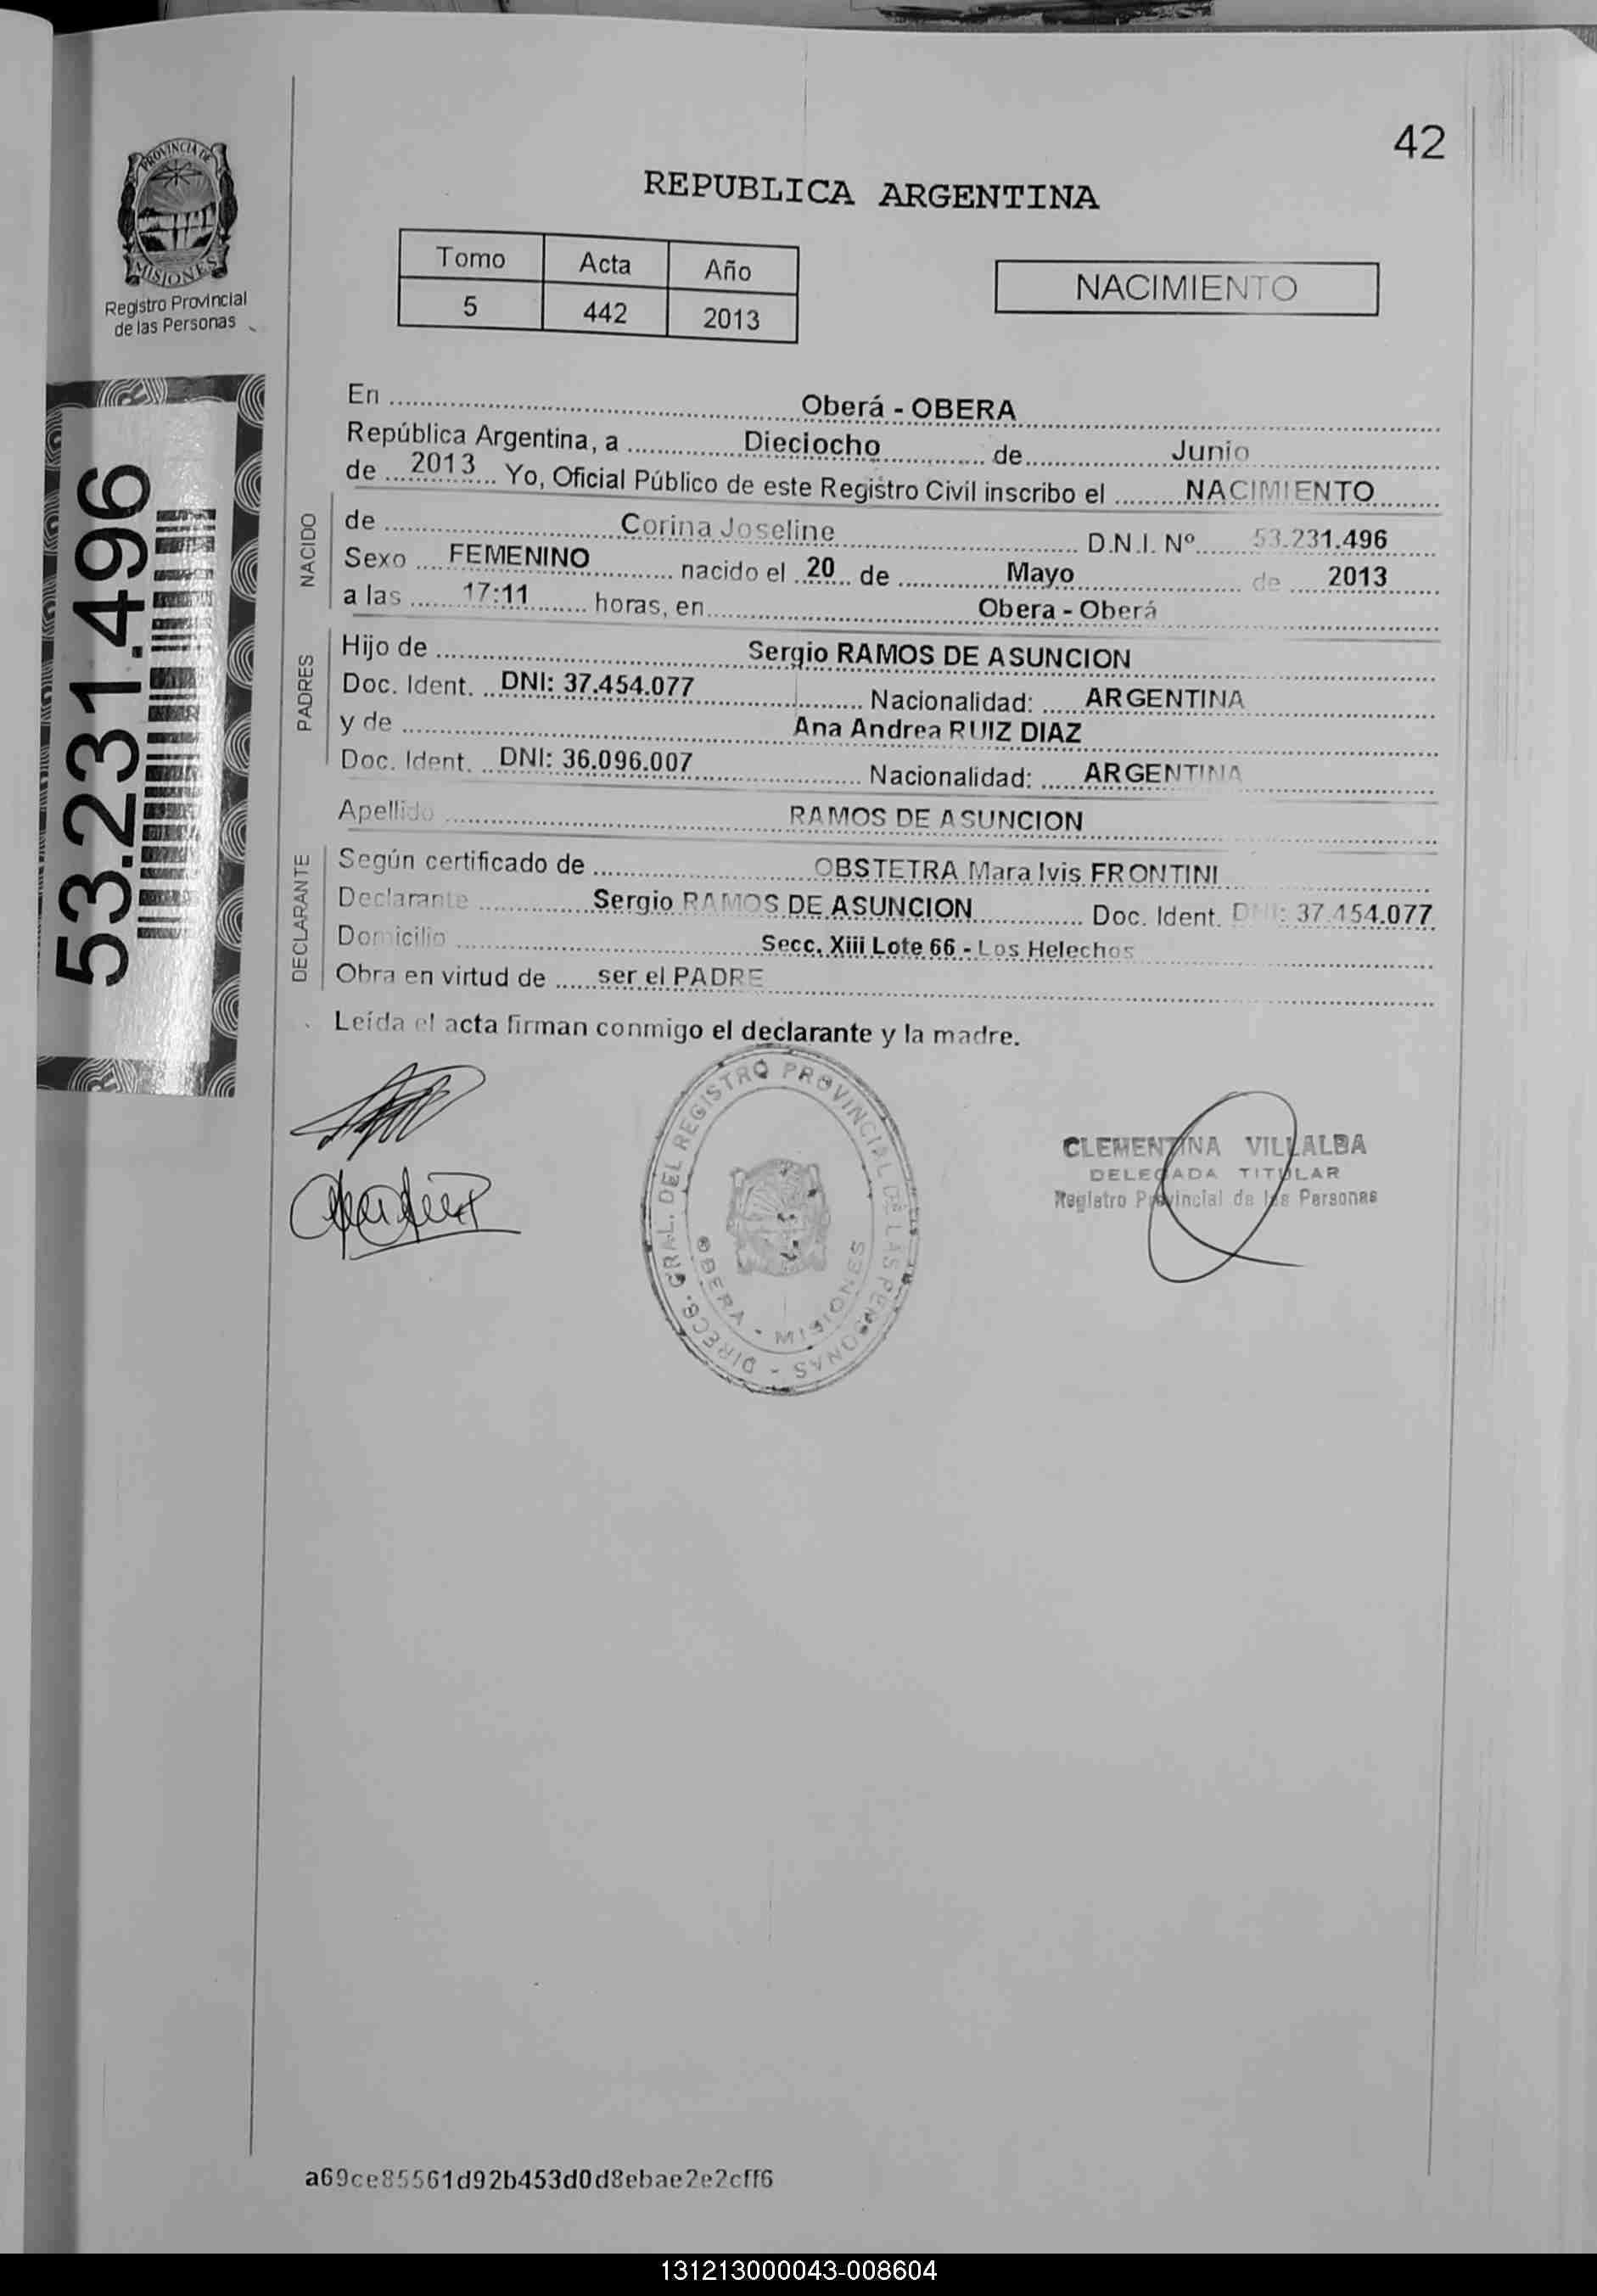 42
PROVINCIA DE
MISIONES
Registro Provincial
de las Personas
REPUBLICA ARGENTINA
Tomo Acta Año
5 442 2013
NACIMIENTO
53.231.496
En Oberá - OBERA
República Argentina, a Dieciocho de Junio
de 2013 Yo, Oficial Público de este Registro Civil inscribo el NACIMIENTO
NACIDO
de Corina Joseline D.N.I. Nº 53.231.496
Sexo FEMENINO nacido el 20 de Mayo de 2013
a las 17:11 horas, en Obera - Oberá
PADRES
Hijo de Sergio RAMOS DE ASUNCION
Doc. Ident. DNI: 37.454.077 Nacionalidad: ARGENTINA
y de Ana Andrea RUIZ DIAZ
Doc. Ident. DNI: 36.096.007 Nacionalidad: ARGENTINA
Apellido RAMOS DE ASUNCION
DECLARANTE
Según certificado de OBSTETRA Mara Ivis FRONTINI
Declarante Sergio RAMOS DE ASUNCION Doc. Ident. DNI: 37.454.077
Domicilio Secc. Xiii Lote 66 - Los Helechos
Obra en virtud de ser el PADRE
Leída el acta firman conmigo el declarante y la madre.
DIRECC. GRAL. DEL REGISTRO PROVINCIAL DE LAS PERSONAS -
OBERA - MISIONES
CLEMENTINA VILLALBA
DELEGADA TITULAR
Registro Provincial de las Personas
a69ce85561d92b453d0d8ebae2e2cff6
131213000043-008604